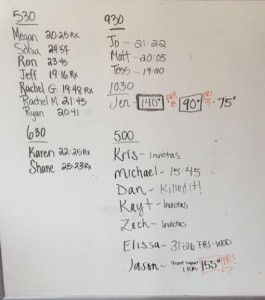 530
Megan 20:25 Rx
Sofia 24:54
Ron 23:45
Jeff 19:16 Rx
Rachel G. 19:48 Rx
Rachel M. 21:45
Ryan 20:41
630
Karen 22:25 Rx
Shane 25:23 Rx
930
Jo - 21:22
Matt - 20:05
Tess - 19:00
1030
Jen - 140# 90# 75#
500
Kris - Invictus
Michael - 15:45
Dan - Killed it!
Kayt - Invictus
Zach - Invictus
Elissa - 31:26 FRI-WOD
Jason - Front Squat 1RM 155# PR!